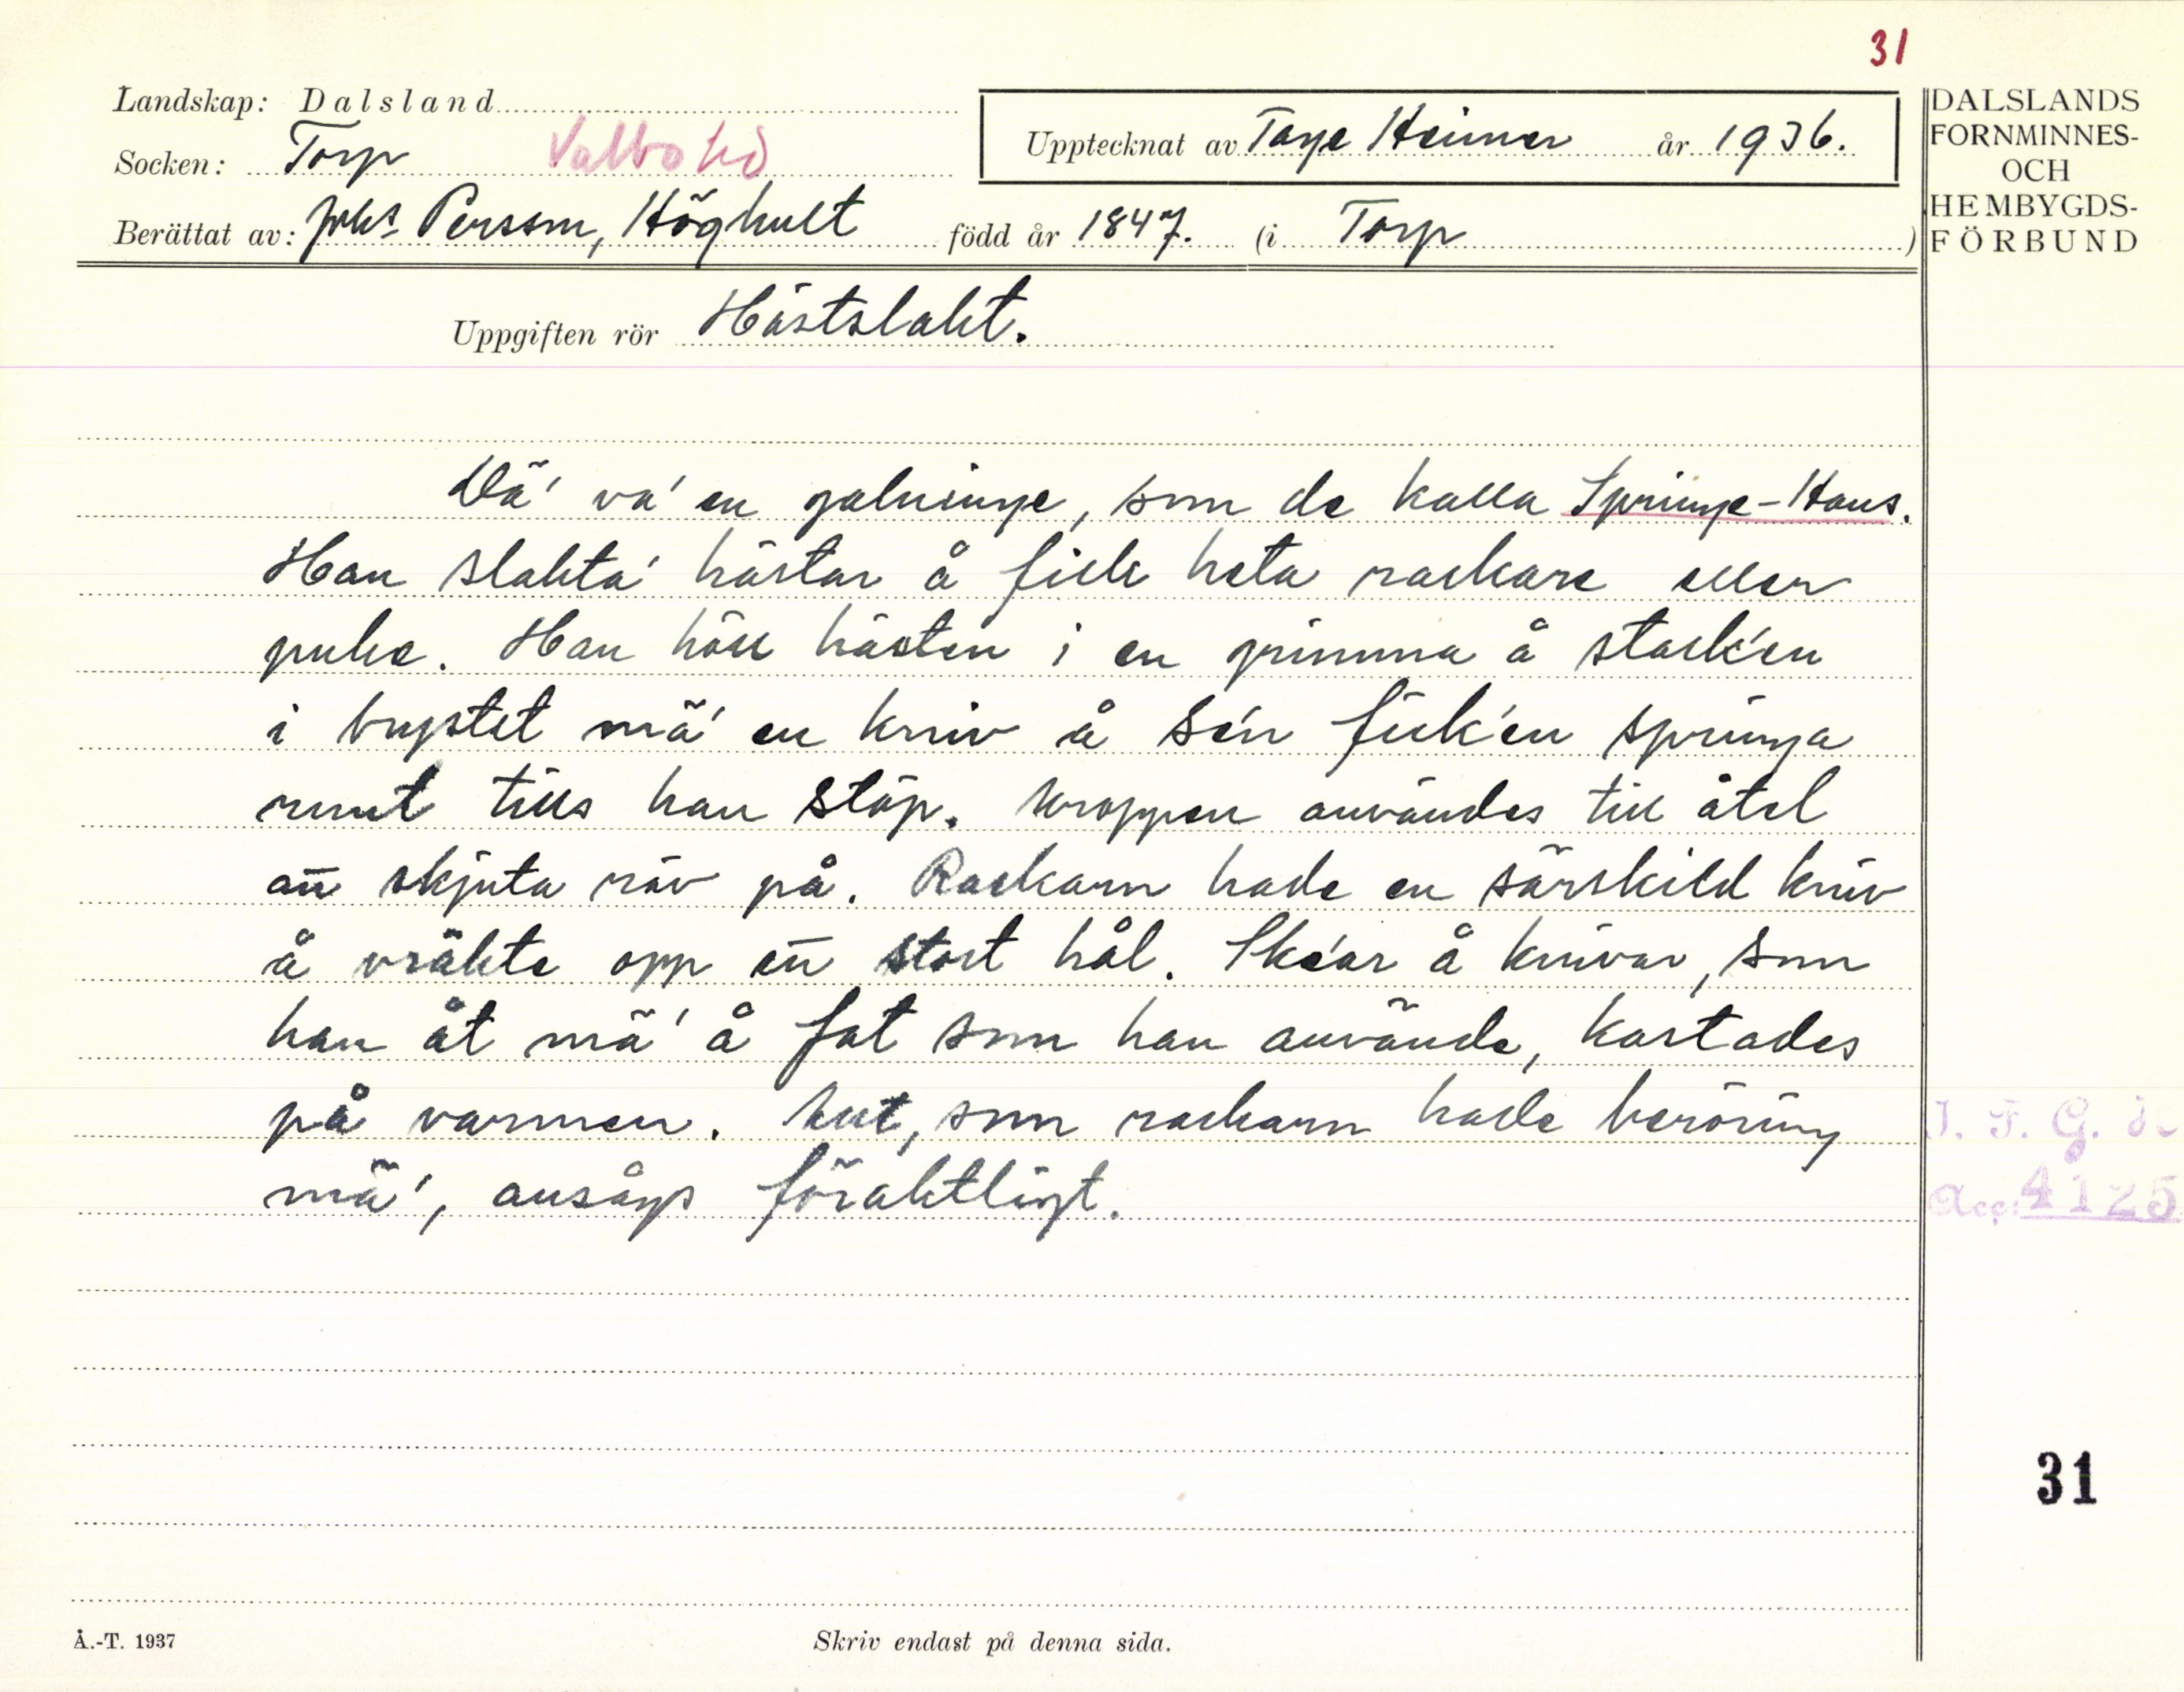 31
Landskap: Dalsland
Socken: Torp Valbo hd
Upptecknat av Tage Heimer år 1936.
Berättat av: Johs Persson, Höghult född år 1847. (i Torp)
DALSLANDS
FORNMINNES-
OCH
HEMBYGDS-
FÖRBUND
Uppgiften rör Hästslakt.
Dä' va' en galninge, som de kalla Springe-Hans.
Han slakta' hästar å fick heta rackare eller
puke. Han höll hästen i en grimma å stack'en
i bystet mä' en kniv å se'n fick'en springa
runt tills han stöp. Kroppen användes till åtel
att skjuta räv på. Rackarn hade en särskild kniv
å vräkte opp ett stort hål. Ske'ar å knivar, som
han åt mä' å fat som han använde, kastades
på varmen. Allt, som rackarn hade beröring
mä', ansågs föraktligt.
I. F. G. s
Acc: 4125
31
Å.-T. 1937
Skriv endast på denna sida.